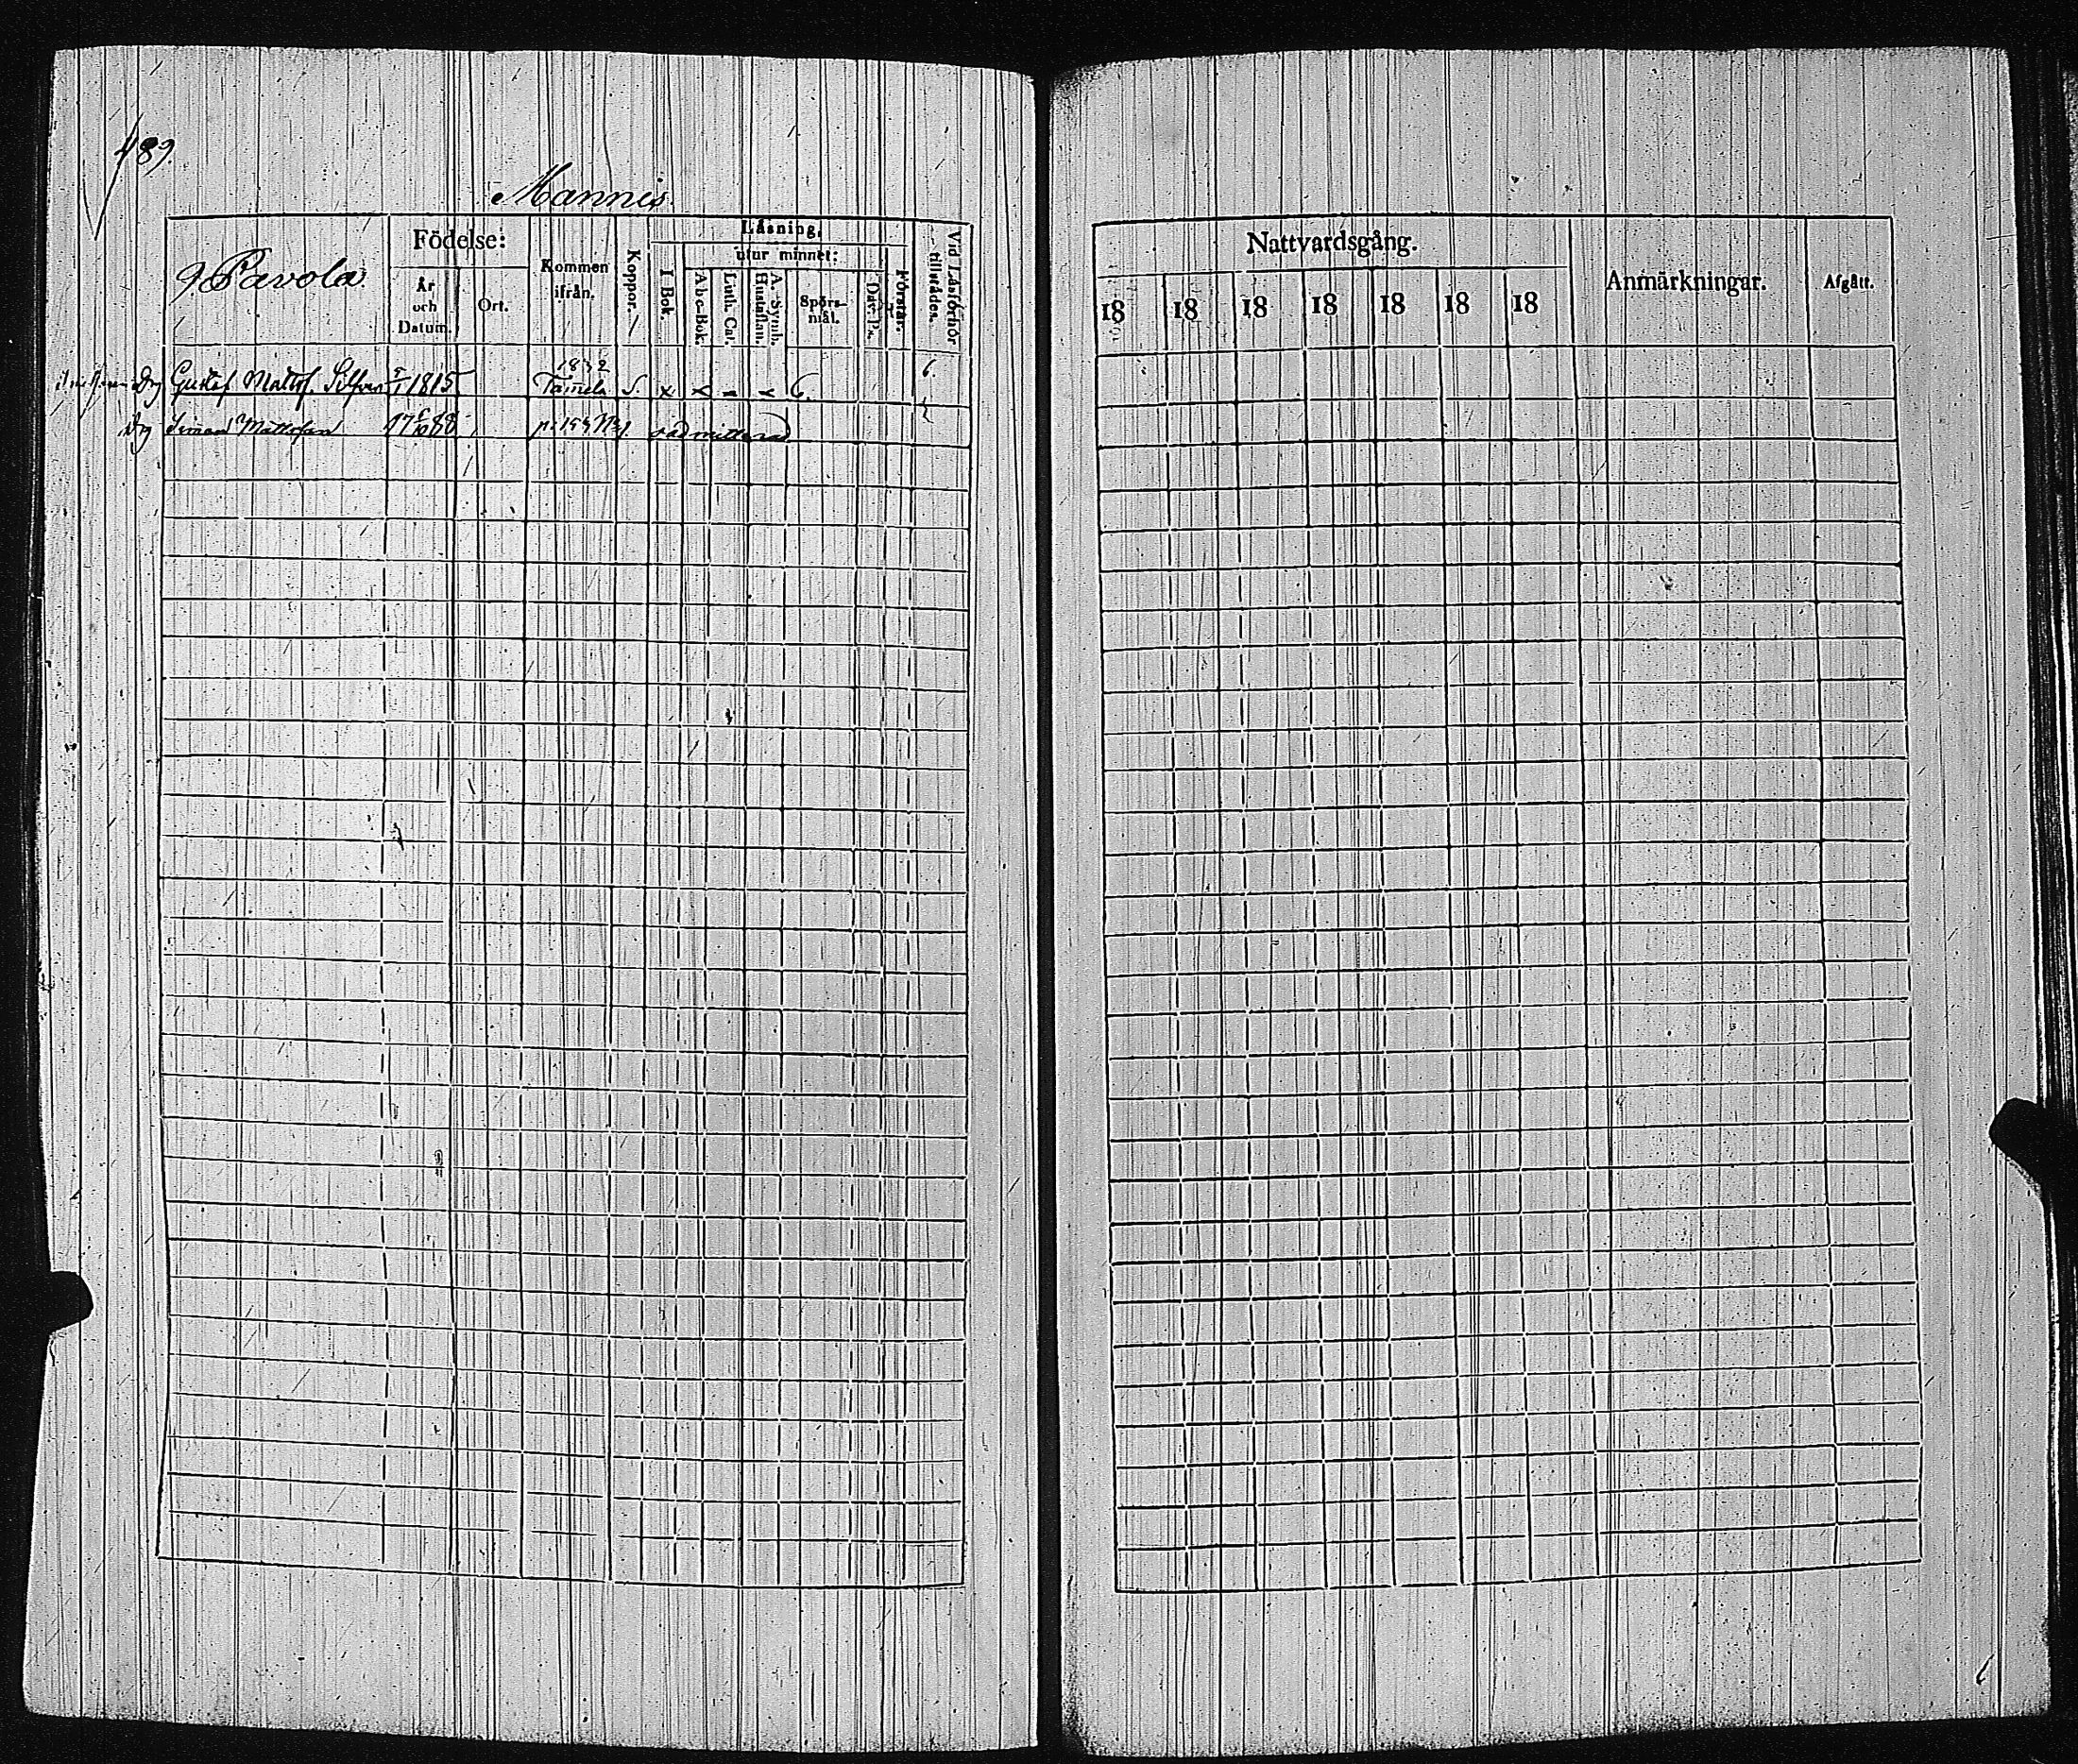 489.
Mannis
9. Pavola.
Födelse:
År och Datum.
Ort.
Kommen ifrån.
Koppor.
Läsning,
I Bok.
utur minnet:
Abc-Bok.
Luth. Cat.
A. Symb. Hustaflan.
Spörsmål.
Dav. Ps.
Förstår.
Vid Läsförhör tillstädes.
Nattvardsgång.
18 18 18 18 18 18 18
Anmärkningar.
Afgått.
1832
Drg Gustaf Mattss. Silfver 1815 Tamela S. x x x 6. 6.
Drg Simon Mattsson admitterad